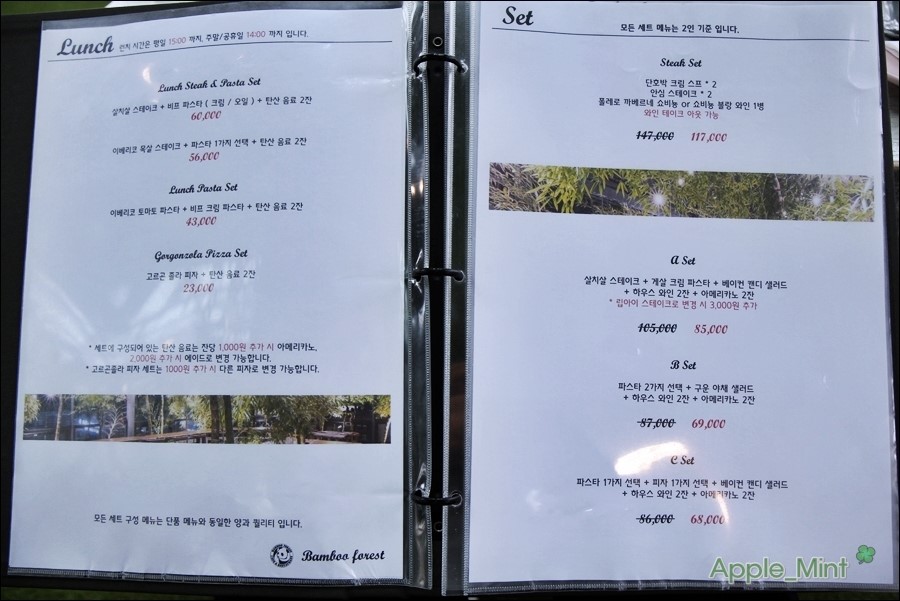 Lunch 런치 시간은 평일 15:00 까지, 주말/공휴일 14:00 까지 입니다.
Lunch Steak & Pasta Set
살치살 스테이크 + 비프 파스타 ( 크림 / 오일 ) + 탄산 음료 2잔
60,000
이베리코 목살 스테이크 + 파스타 1가지 선택 + 탄산 음료 2잔
56,000
Lunch Pasta Set
이베리코 토마토 파스타 + 비프 크림 파스타 + 탄산 음료 2잔
43,000
Gorgonzola Pizza Set
고르곤 졸라 피자 + 탄산 음료 2잔
23,000
* 세트에 구성되어 있는 탄산 음료는 잔당 1,000원 추가 시 아메리카노,
2,000원 추가 시 에이드로 변경 가능합니다.
* 고르곤졸라 피자 세트는 1000원 추가 시 다른 피자로 변경 가능합니다.
모든 세트 구성 메뉴는 단품 메뉴와 동일한 양과 퀄리티 입니다.
Bamboo forest
Set 모든 세트 메뉴는 2인 기준 입니다.
Steak Set
단호박 크림 스프 * 2
안심 스테이크 * 2
폴레로 까베르네 쇼비뇽 or 쇼비뇽 블랑 와인 1병
와인 테이크 아웃 가능
147,000 117,000
A Set
살치살 스테이크 + 게살 크림 파스타 + 베이컨 캔디 샐러드
+ 하우스 와인 2잔 + 아메리카노 2잔
* 립아이 스테이크로 변경 시 3,000원 추가
105,000 85,000
B Set
파스타 2가지 선택 + 구운 야채 샐러드
+ 하우스 와인 2잔 + 아메리카노 2잔
87,000 69,000
C Set
파스타 1가지 선택 + 피자 1가지 선택 + 베이컨 캔디 샐러드
+ 하우스 와인 2잔 + 아메리카노 2잔
86,000 68,000
Apple_Mint